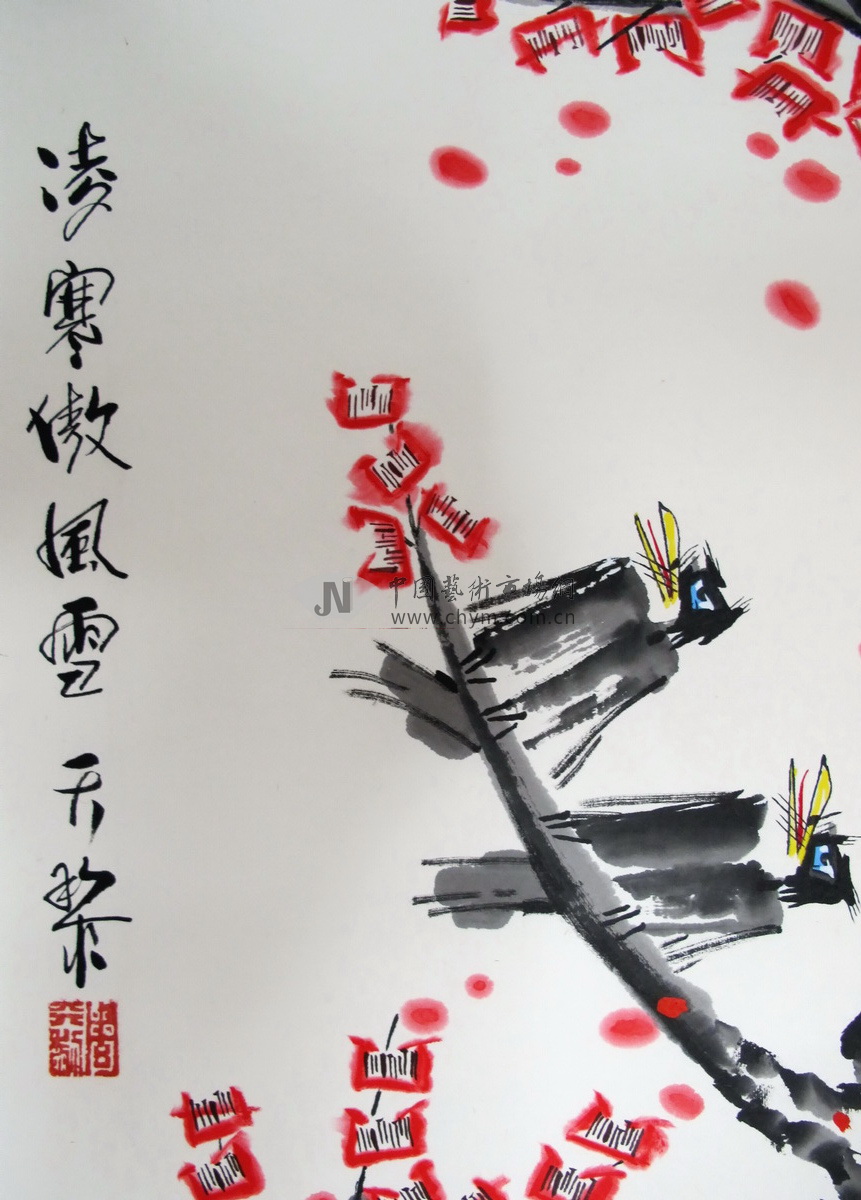 凌寒傲風雪 天黎
JN 中國藝術市場網
www.chym.com.cn